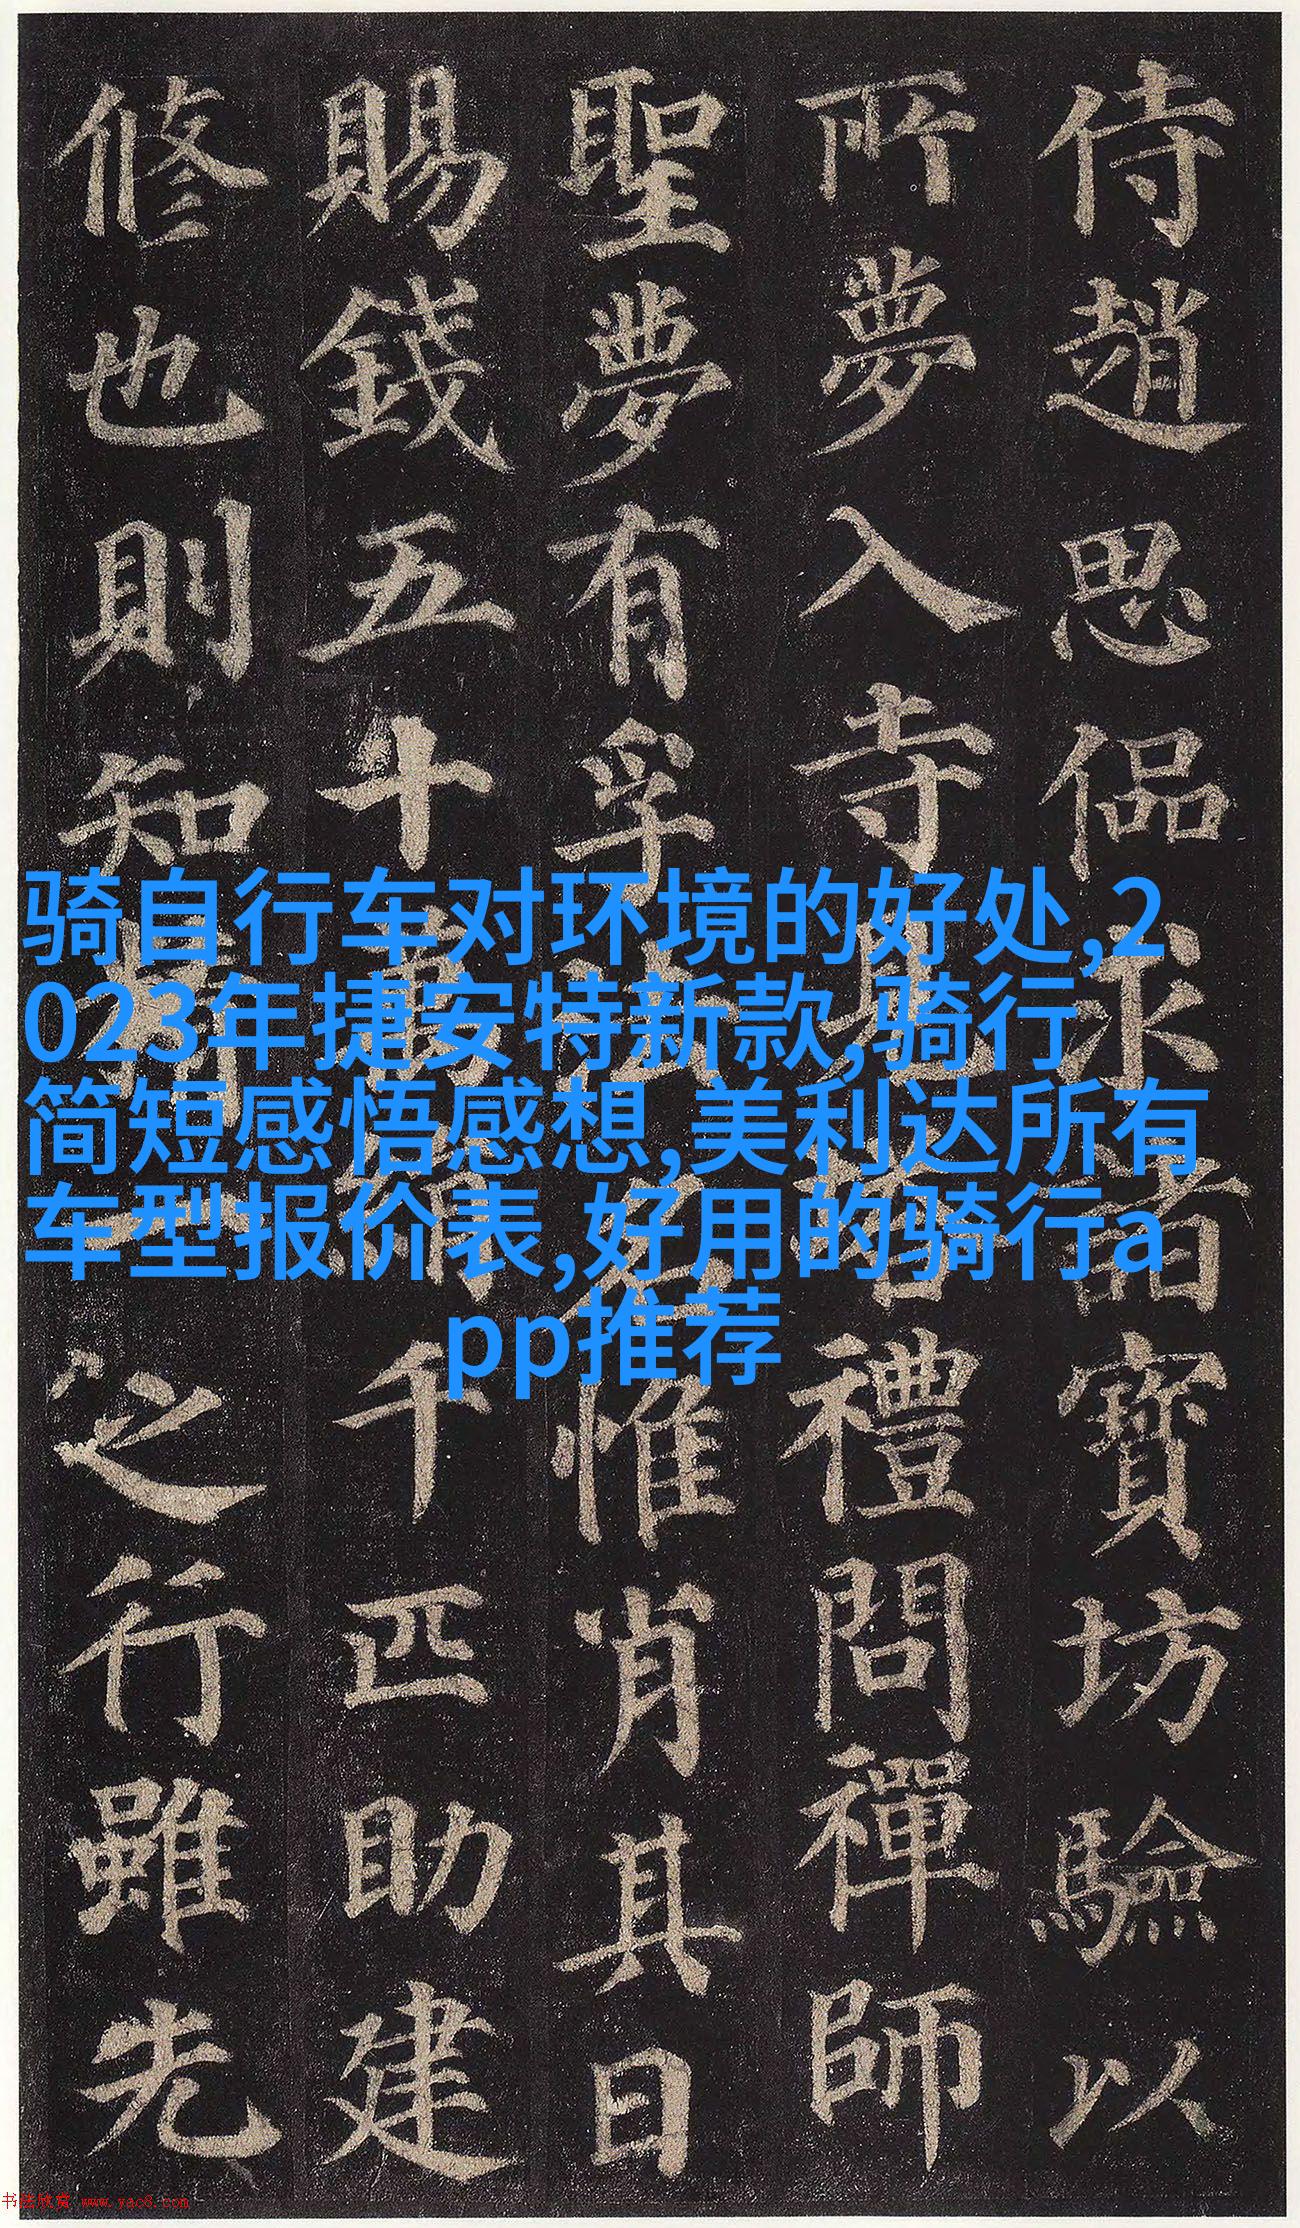 侍趙思偘求諸寶坊驗以
所夢入寺見塔禮問禪師
聖夢有孚法名惟肖其日
賜錢五十萬絹千匹助建
修也則知精一之行雖先
骑自行车对环境的好处,2
023年捷安特新款,骑行
简短感悟感想,美利达所有
车型报价表,好用的骑行a
pp推荐
书法欣赏 www.yac8.com